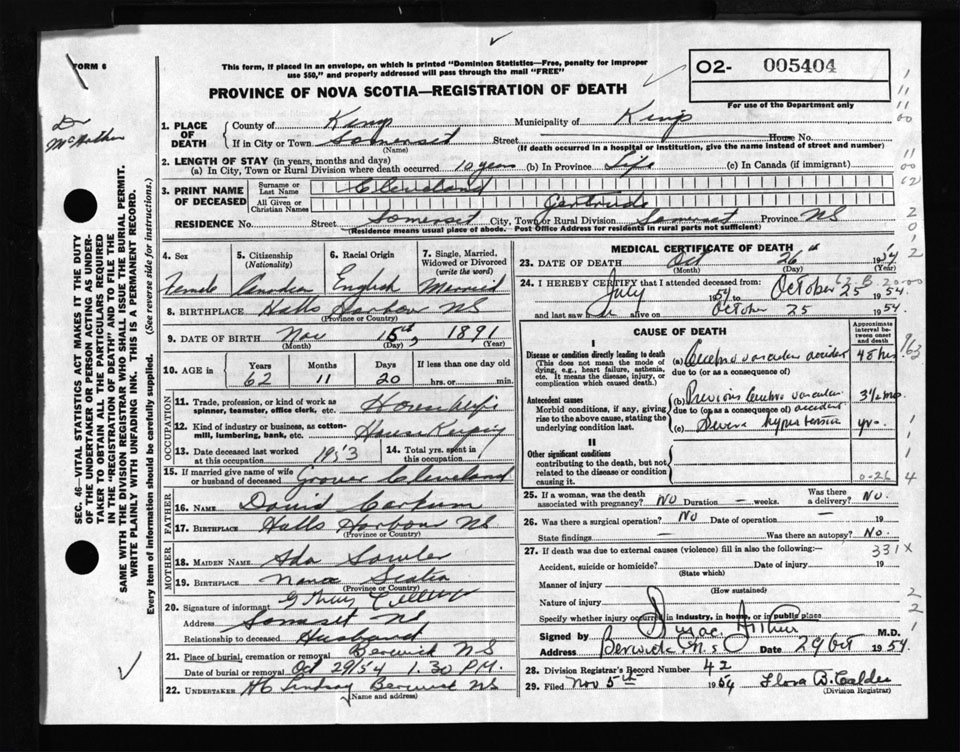 FORM 6
This form, if placed in an envelope, on which is printed "Dominion Statistics—Free, penalty for improper
use $50," and properly addressed will pass through the mail "FREE"
PROVINCE OF NOVA SCOTIA—REGISTRATION OF DEATH
O2- 005404
For use of the Department only
Dr
1. PLACE OF DEATH
County of Kings Municipality of Kings
If in City or Town Somerset Street House No.
(Name) (If death occurred in a hospital or institution, give the name instead of street and number)
2. LENGTH OF STAY (in years, months and days)
(a) In City, Town or Rural Division where death occurred 10 years (b) In Province Life (c) In Canada (if immigrant)
3. PRINT NAME OF DECEASED
Surname or Last Name Cleveland
All Given or Christian Names Gertrude
RESIDENCE No. Street Somerset City, Town or Rural Division Somerset Province NS
(Residence means usual place of abode. Post Office Address for residents in rural parts not sufficient)
SEC. 46—VITAL STATISTICS ACT MAKES IT THE DUTY
OF THE UNDERTAKER OR PERSON ACTING AS UNDER-
TAKER TO OBTAIN ALL THE PARTICULARS REQUIRED
IN THE "REGISTRATION OF DEATH" AND TO FILE THE
SAME WITH THE DIVISION REGISTRAR WHO SHALL ISSUE THE BURIAL PERMIT.
WRITE PLAINLY WITH UNFADING INK. THIS IS A PERMANENT RECORD.
Every item of information should be carefully supplied. (See reverse side for instructions.)
4. Sex 5. Citizenship (Nationality) 6. Racial Origin 7. Single, Married, Widowed or Divorced (write the word)
Female Canadian English Married
8. BIRTHPLACE Halls Harbour NS
(Province or Country)
9. DATE OF BIRTH Nov 15th, 1891
(Month) (Day) (Year)
10. AGE in Years Months Days If less than one day old
62 11 20 hrs. or min.
OCCUPATION
11. Trade, profession, or kind of work as
spinner, teamster, office clerk, etc. Housewife
12. Kind of industry or business, as cotton-
mill, lumbering, bank, etc. House Keeping
13. Date deceased last worked
at this occupation 1953
14. Total yrs. spent in
this occupation
15. If married give name of wife
or husband of deceased Grover Cleveland
FATHER
16. Name David Corkum
17. Birthplace Halls Harbour NS
(Province or Country)
MOTHER
18. MAIDEN NAME Ada
19. BIRTHPLACE Nova Scotia
(Province or Country)
20. Signature of informant
Address Somerset NS
Relationship to deceased Husband
21. Place of burial, cremation or removal Berwick NS
Date of burial or removal Oct 29/54 1.30 P.M.
22. UNDERTAKER HC Lindsay Berwick NS
(Name and address)
MEDICAL CERTIFICATE OF DEATH
23. DATE OF DEATH Oct 26th 1954
(Month) (Day) (Year)
24. I HEREBY CERTIFY that I attended deceased from:
July 1954 to October 25 1954.
and last saw h alive on October 25 1954
CAUSE OF DEATH
Approximate interval between onset and death
I
Disease or condition directly leading to death
(This does not mean the mode of
dying, e.g., heart failure, asthenia,
etc. It means the disease, injury, or
complication which caused death.)
(a) Cerebro vascular accident 48 hrs
due to (or as a consequence of)
Antecedent causes
Morbid conditions, if any, giving
rise to the above cause, stating the
underlying condition last.
(b) Previous Cerebro vascular
due to (or as a consequence of) accident
(c) Severe hypertension yr-
II
Other significant conditions
contributing to the death, but not
related to the disease or condition
causing it.
0-26
25. If a woman, was the death
associated with pregnancy? No Duration — weeks. Was there
a delivery? No.
26. Was there a surgical operation? No Date of operation — 19
State findings — Was there an autopsy? No.
27. If death was due to external causes (violence) fill in also the following:— 331X
Accident, suicide or homicide? Date of injury 19
(State which)
Manner of injury
(How sustained)
Nature of injury
Specify whether injury occurred in industry, in home, or in public place
Signed by M.D.
Address Berwick N.S Date 29 Oct 1954.
28. Division Registrar's Record Number 42
29. Filed Nov 5th 1954 Flora B. Calder
(Division Registrar)